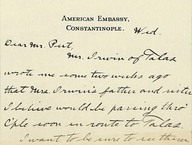 AMERICAN EMBASSY,
CONSTANTINOPLE.
Wed.
Dear Mr. Peet,
Mr. Irwin of Talas
wrote me some two weeks ago
that Mrs. Irwin's father and sister
I believe would be passing thro'
C'ple soon en route to Talas.
I want to be sure to see them